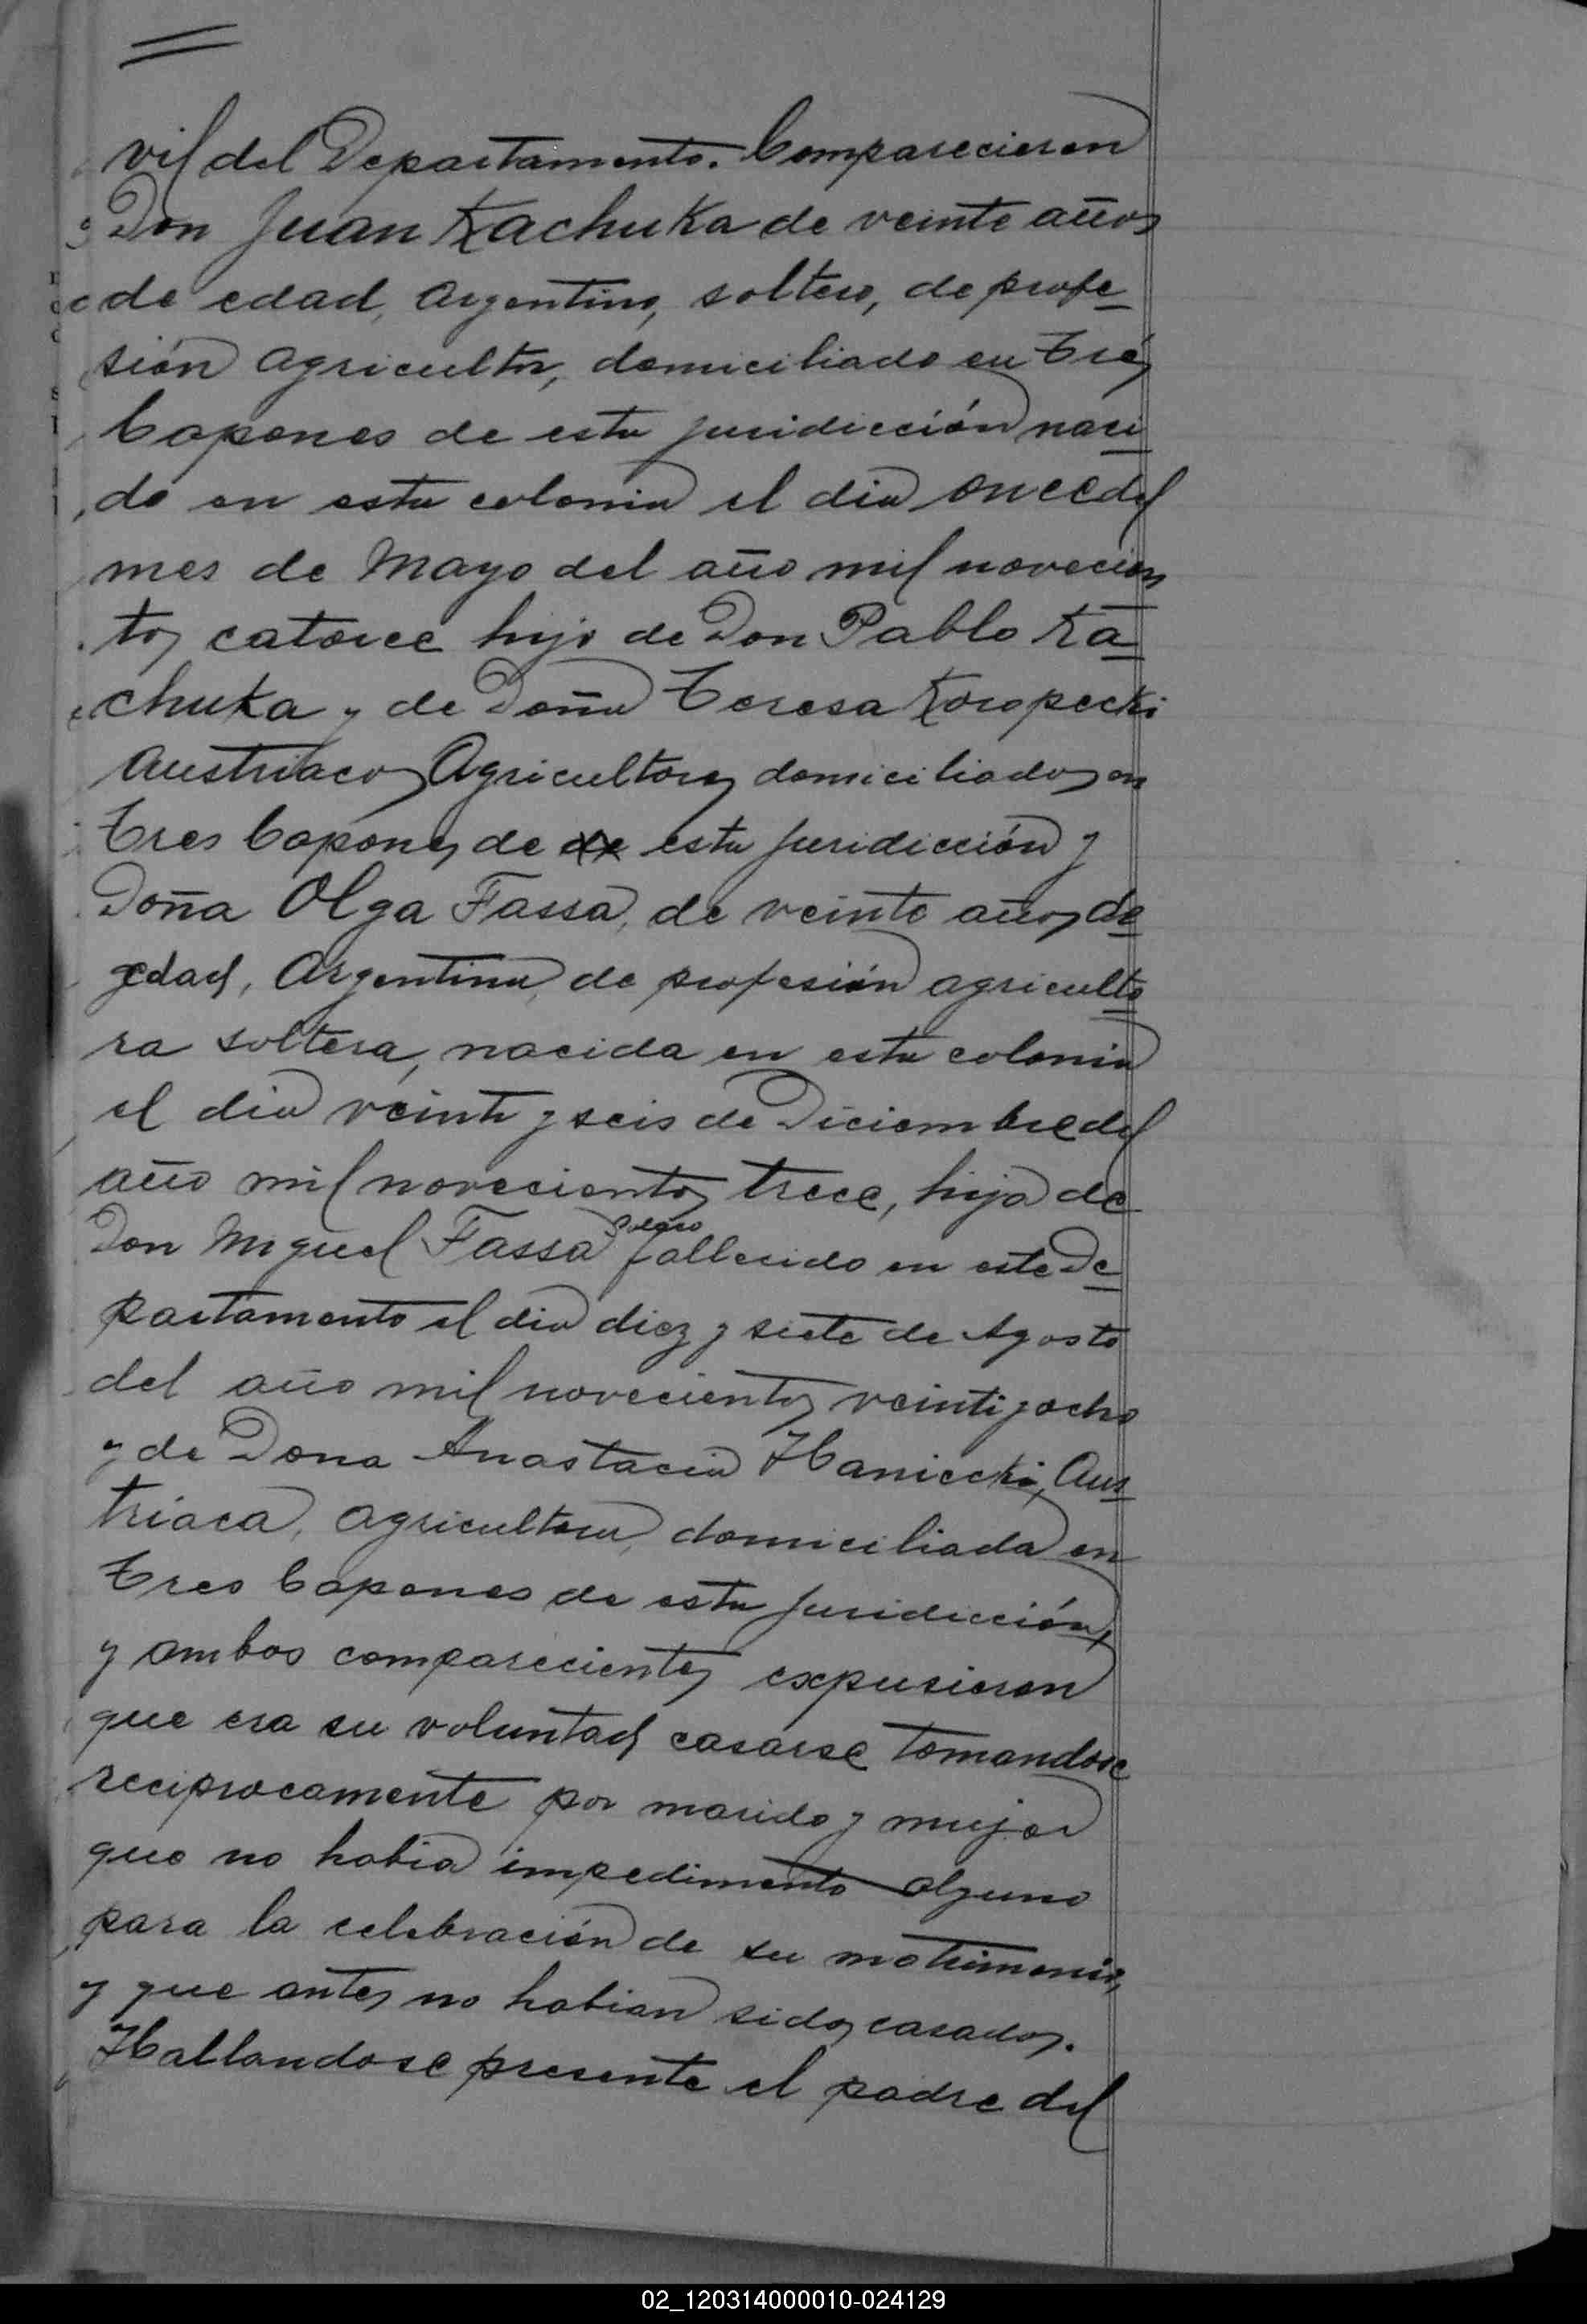 vil del Departamento. Comparecieron
Don Juan Kachuka de veinte años
de edad, Argentino, soltero, de profe-
sión agricultor, domiciliado en Tres
Capones de esta juridicción naci
do en esta colonia el dia once del
mes de Mayo del año mil novecien
tos catorce hijo de Don Pablo Ka
chuka y de Doña Teresa Koropecki
Austriacos Agricultores domiciliados en
Tres Capones de de esta juridicción y
Doña Olga Fassa, de veinte años de
edad, Argentina, de profesión agriculto
ra soltera, nacida en esta colonia
el dia veinte y seis de Diciembre del
año mil novecientos trece, hija de
Don Miguel Fassa fallecido en este De
partamento el dia diez y siete de Agosto
del año mil novecientos veinti y ocho
y de Dona Anastacia Haniecki, Aus
triaca, agricultora, domiciliada en
Tres Capones de esta juridicción,
y ambos comparecientes expusieron
que era su voluntad casarse tomandose
reciprocamente por marido y mujer
que no habia impedimento alguno
para la celebración de su matrimonio,
y que antes no habian sidos casados.
Hallandose presente el padre del
02_120314000010-024129